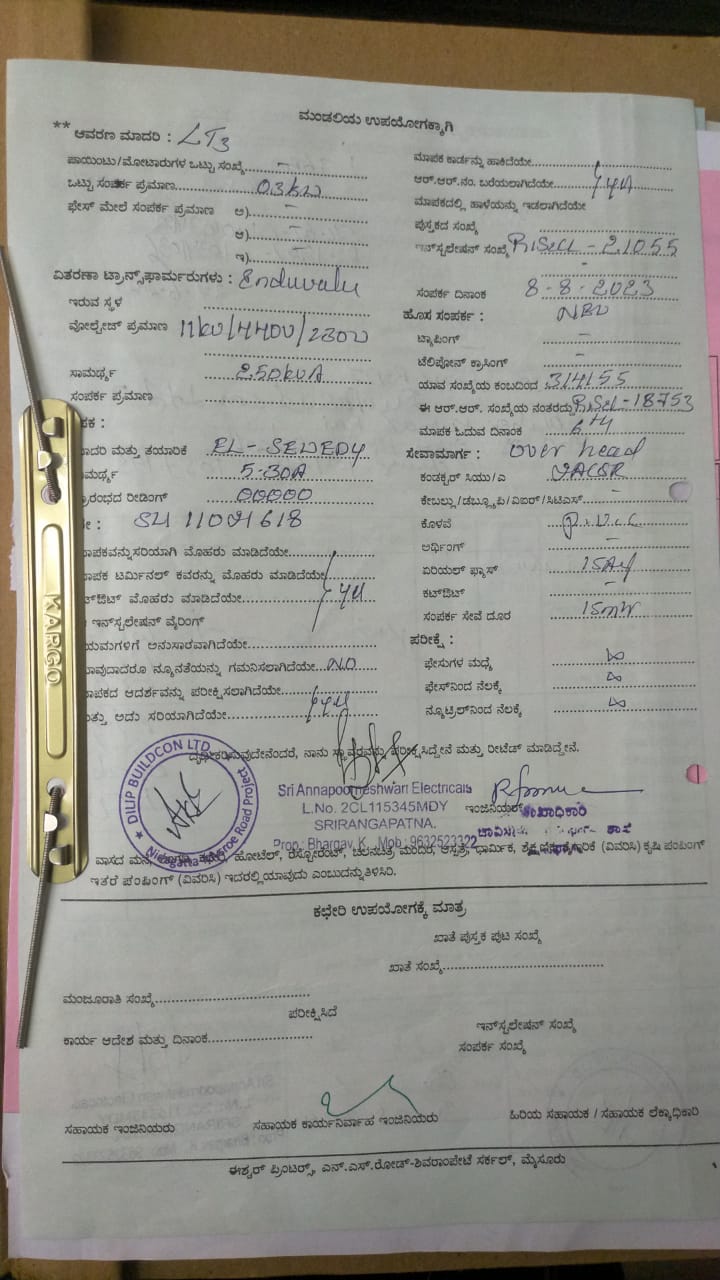 ಮಂಡಲಿಯ ಉಪಯೋಗಕ್ಕಾಗಿ
** ಆವರಣ ಮಾದರಿ : LT3
ಪಾಯಿಂಟು/ಮೋಟಾರುಗಳ ಒಟ್ಟು ಸಂಖ್ಯೆ –
ಒಟ್ಟು ಸಂಪರ್ಕ ಪ್ರಮಾಣ 03kW
ಫೇಸ್ ಮೇಲೆ ಸಂಪರ್ಕ ಪ್ರಮಾಣ ಅ) –
ಆ) –
ಇ) –
ವಿತರಣಾ ಟ್ರಾನ್ಸ್‌ಫಾರ್ಮರುಗಳು : Enduvalu
ಇರುವ ಸ್ಥಳ
ವೋಲ್ಟೇಜ್ ಪ್ರಮಾಣ 11kV/440V/230V
ಸಾಮರ್ಥ್ಯ 250kVA
ಸಂಪರ್ಕ ಪ್ರಮಾಣ
ಪಕ :
ಾದರಿ ಮತ್ತು ತಯಾರಿಕೆ EL-SEWEDY
ಾಮರ್ಥ್ಯ 5-30A
ಾರಂಭದ ರೀಡಿಂಗ್ 00000
ೇ : SU 11091618
ಾಪಕವನ್ನು ಸರಿಯಾಗಿ ಮೊಹರು ಮಾಡಿದೆಯೇ
ಾಪಕ ಟರ್ಮಿನಲ್ ಕವರನ್ನು ಮೊಹರು ಮಾಡಿದೆಯೇ
ಟ್‌ಔಟ್ ಮೊಹರು ಮಾಡಿದೆಯೇ
ಇನ್‌ಸ್ಟಲೇಷನ್ ವೈರಿಂಗ್
ಯಮಗಳಿಗೆ ಅನುಸಾರವಾಗಿದೆಯೇ
ಾವುದಾದರೂ ನ್ಯೂನತೆಯನ್ನು ಗಮನಿಸಲಾಗಿದೆಯೇ NO
ಾಪಕದ ಆದರ್ಶವನ್ನು ಪರೀಕ್ಷಿಸಲಾಗಿದೆಯೇ
ತ್ತು ಅದು ಸರಿಯಾಗಿದೆಯೇ
ಮಾಪಕ ಕಾರ್ಡನ್ನು ಹಾಕಿದೆಯೇ
ಆರ್.ಆರ್.ನಂ. ಬರೆಯಲಾಗಿದೆಯೇ
ಮಾಪಕದಲ್ಲಿ ಹಾಳೆಯನ್ನು ಇಡಲಾಗಿದೆಯೇ
ಪುಸ್ತಕದ ಸಂಖ್ಯೆ
ಇನ್‌ಸ್ಟಲೇಷನ್ ಸಂಖ್ಯೆ - 21055
ಸಂಪರ್ಕ ದಿನಾಂಕ 8-8-2023
ಹೊಸ ಸಂಪರ್ಕ :
ಟ್ಯಾಪಿಂಗ್ –
ಟೆಲಿಫೋನ್ ಕ್ರಾಸಿಂಗ್ –
ಯಾವ ಸಂಖ್ಯೆಯ ಕಂಬದಿಂದ 314155
ಈ ಆರ್.ಆರ್. ಸಂಖ್ಯೆಯ ನಂತರದ್ದು - 18753
ಮಾಪಕ ಓದುವ ದಿನಾಂಕ 6th
ಸೇವಾಮಾರ್ಗ : over head
ಕಂಡಕ್ಟರ್ ಸಿಯು/ಎ
ಕೇಬಲ್ಲು/ಡಬ್ಲ್ಯೂಪಿ/ಎಐಆರ್/ಸಿಟಿಎಸ್ –
ಕೊಳವೆ P.V.C
ಅರ್ಥಿಂಗ್ –
ಏರಿಯಲ್ ಫ್ಯೂಸ್
ಕಟ್‌ಔಟ್ –
ಸಂಪರ್ಕ ಸೇವೆ ದೂರ
ಪರೀಕ್ಷೆ :
ಫೇಸುಗಳ ಮಧ್ಯೆ ∞
ಫೇಸ್‌ನಿಂದ ನೆಲಕ್ಕೆ ∞
ನ್ಯೂಟ್ರಲ್‌ನಿಂದ ನೆಲಕ್ಕೆ ∞
ದೃಢೀಕರಿಸುವುದೇನೆಂದರೆ, ನಾನು ಸ್ಥಾವರವನ್ನು ಪರೀಕ್ಷಿಸಿದ್ದೇನೆ ಮತ್ತು ರೀಟೆಡ್ ಮಾಡಿದ್ದೇನೆ.
DILIP BUILDCON LTD.
Road Project
Sri Annapoorneshwari Electricals
L.No. 2CL115345MDY
SRIRANGAPATNA.
Prop.: Bhargav K. Mob: 9632523322
ಇಂಜಿನಿಯರ್
ವಾಸದ ಹೋಟೆಲ್, ರೆಸ್ಟೋರೆಂಟ್, ಚಲನಚಿತ್ರ ಮಂದಿರ, ಆಸ್ಪತ್ರೆ, ಧಾರ್ಮಿಕ, (ವಿವರಿಸಿ) ಕೃಷಿ ಪಂಪಿಂಗ್
ಇತರೆ ಪಂಪಿಂಗ್ (ವಿವರಿಸಿ) ಇದರಲ್ಲಿ ಯಾವುದು ಎಂಬುದನ್ನು ತಿಳಿಸಿರಿ.
ಕಛೇರಿ ಉಪಯೋಗಕ್ಕೆ ಮಾತ್ರ
ಖಾತೆ ಪುಸ್ತಕ ಪುಟ ಸಂಖ್ಯೆ
ಖಾತೆ ಸಂಖ್ಯೆ
ಮಂಜೂರಾತಿ ಸಂಖ್ಯೆ
ಪರೀಕ್ಷಿಸಿದೆ
ಇನ್‌ಸ್ಟಲೇಷನ್ ಸಂಖ್ಯೆ
ಕಾರ್ಯ ಆದೇಶ ಮತ್ತು ದಿನಾಂಕ
ಸಂಪರ್ಕ ಸಂಖ್ಯೆ
ಸಹಾಯಕ ಇಂಜಿನಿಯರು ಸಹಾಯಕ ಕಾರ್ಯನಿರ್ವಾಹ ಇಂಜಿನಿಯರು ಹಿರಿಯ ಸಹಾಯಕ / ಸಹಾಯಕ ಲೆಕ್ಕಾಧಿಕಾರಿ
ಈಶ್ವರ್ ಪ್ರಿಂಟರ್ಸ್, ಎನ್.ಎಸ್.ರೋಡ್-ಶಿವರಾಂಪೇಟೆ ಸರ್ಕಲ್, ಮೈಸೂರು
KARGO